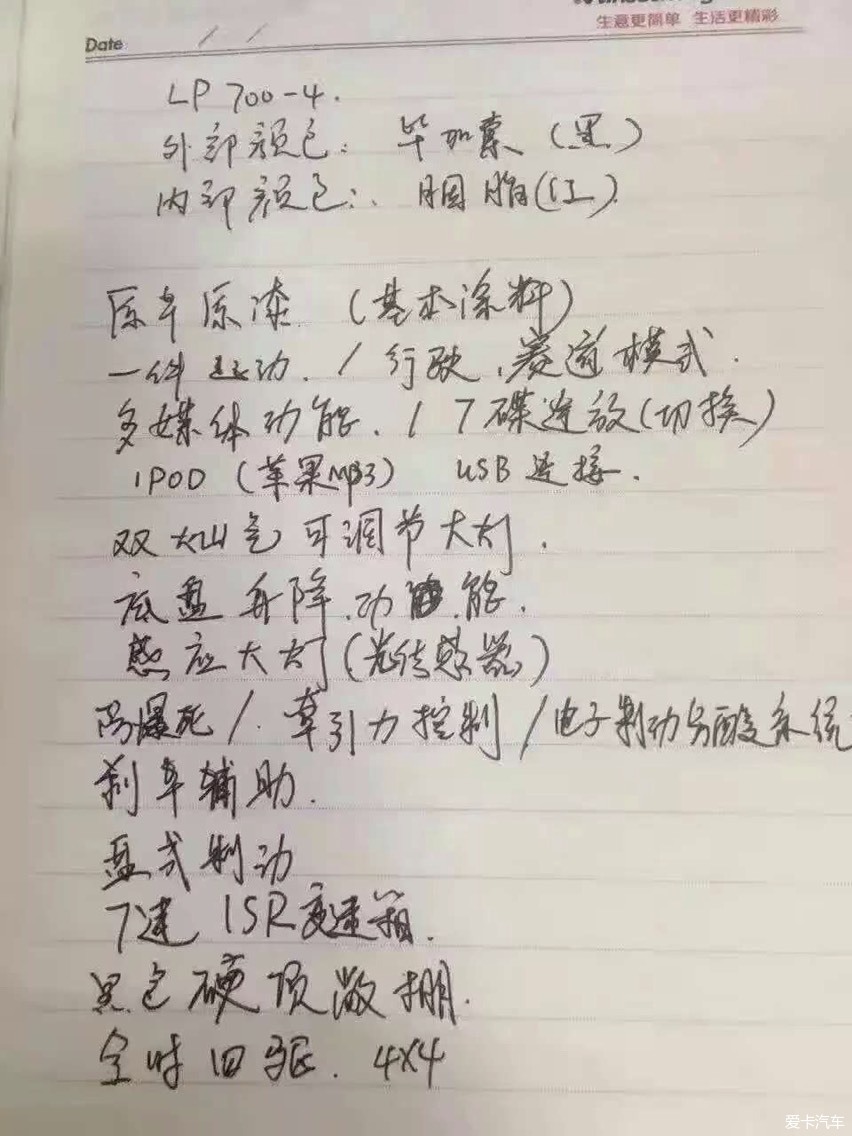 生意更简单 生活更精彩
Date / /
LP 700-4.
外部颜色: 毕加索(黑)
内部颜色: 胭脂(红)
原车原漆 (基本涂料)
一件运动. / 行驶、赛道模式.
多媒体功能. / 7碟连放(切换)
IPOD (苹果MP3) USB 连接.
双氙气可调节大灯.
底盘升降.功能.
感应大灯(光传感器)
防爆死/. 牵引力控制/电子制动分配系统
刹车辅助.
盘式制动
7速 ISR变速箱.
黑色硬顶敞棚.
全时四驱. 4X4
爱卡汽车